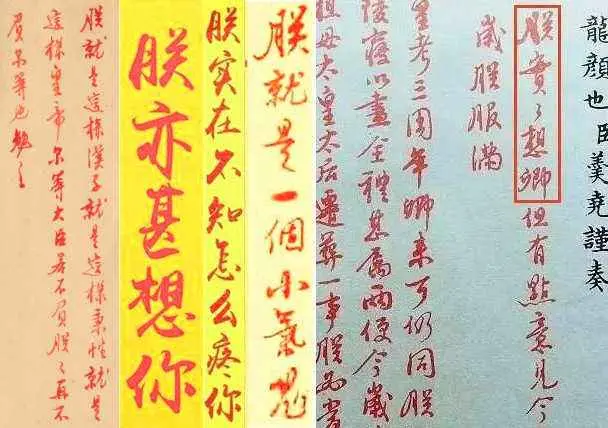 龍顏也臣羹堯謹奏
朕實々想卿但有點意見今
歲朕服滿
皇考三周年卿来可仍同朕
陵寢以盡全禮甚属兩便今歲
祖母太皇太后遷葬一事朕
朕就是一個小氣鬼
朕实在不知怎么疼你
朕亦甚想你
朕就是這樣漢子就是這樣秉性就是
這樣皇帝尔等大臣若不負朕々再不
負尔等也勉之